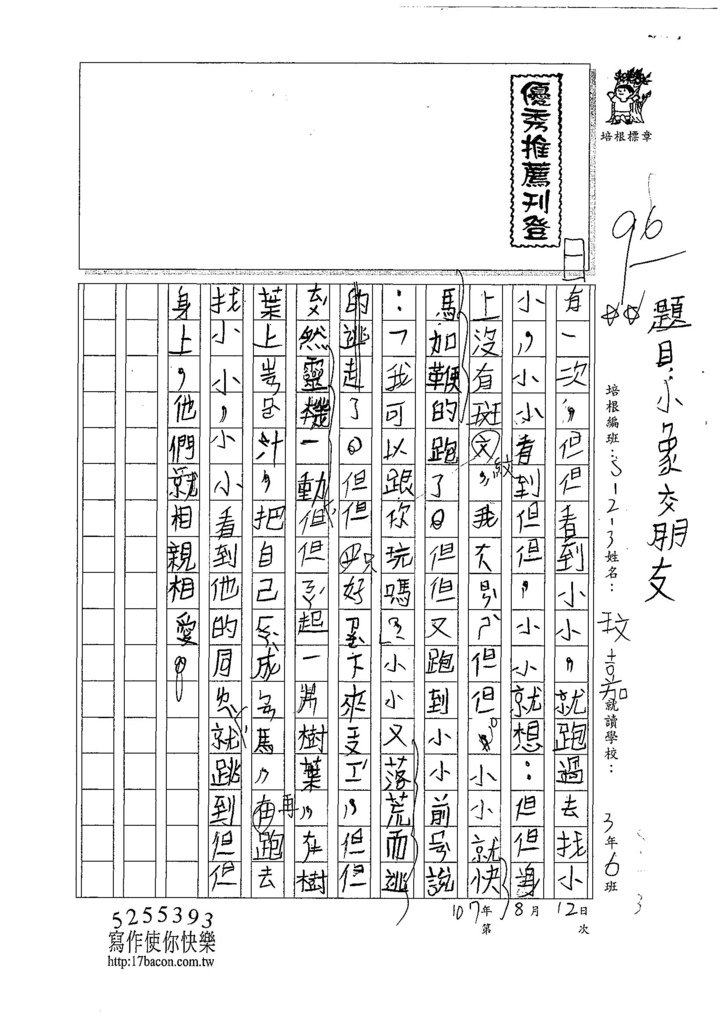 培根標章
優秀推薦刊登
96
題目:小象交朋友
培根編班:3-1-2-3姓名:玟嘉就讀學校:3年6班
107年8月12日
第 次
有一次,但但看到小小,就跑過去找小
小,小小看到但但,小小就想:但但身
上沒有斑文紋,我 但但。小小就快
馬加鞭的跑了。但但又跑到小小前 說
:「我可以跟你玩嗎?」小小又落荒而逃
的逃走了。但但只好 下來 ,但但
突然靈機一動,但但 起一 樹葉,在樹
葉上 汁,把自己 成 馬,在再跑去
找小小,小小看到他的同 就跳到但但
身上,他們就相親相愛。
5255393
寫作使你快樂
http:17bacon.com.tw